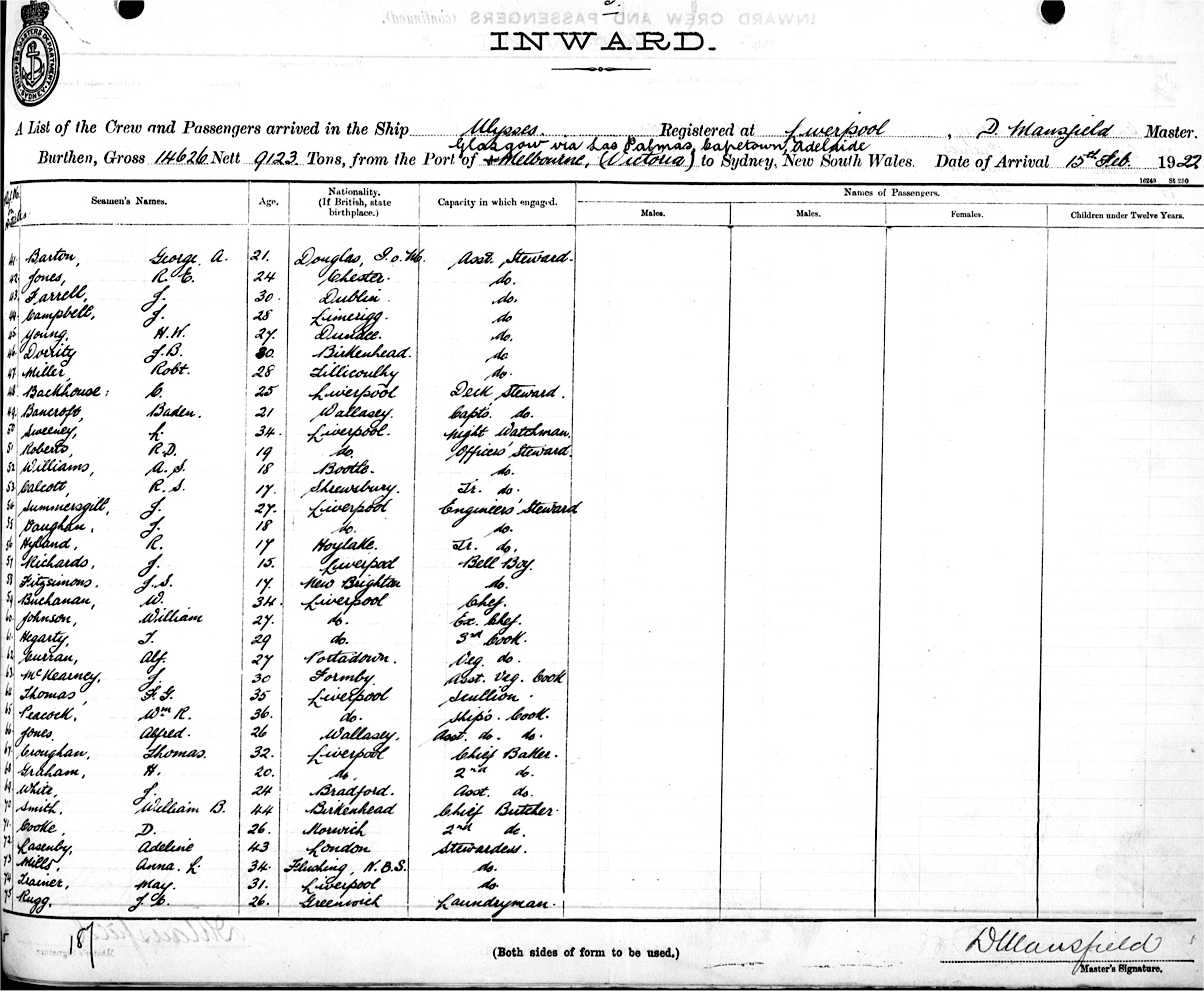 INWARD CREW AND PASSENGERS (continued).
INWARD.
SHIPPING MASTERS DEPARTMENT SYDNEY
A List of the Crew and Passengers arrived in the Ship Ulysses. Registered at Liverpool, D. Mansfield Master.
Glasgow via Las Palmas, Capetown, Adelaide
Burthen, Gross 14626 Nett 9123 Tons, from the Port of & Melbourne, (Victoria) to Sydney, New South Wales. Date of Arrival 15th Feb. 1922
16249 St 230
No. in Articles Seamen's Names. Age. Nationality. (If British, state birthplace.) Capacity in which engaged. Names of Passengers.
Males. Males. Females. Children under Twelve Years.
41. Barton, George A. 21. Douglas, I.o.M. Asst. Steward.
42. Jones, R. E. 24 Chester. do.
43. Farrell, J. 30. Dublin. do.
44. Campbell, J. 28 Limerigg. do
45 Young, H.W. 27. Dundee. do.
46. Dority J.B. 30. Birkenhead. do
47. Miller, Robt. 28 Tillicoulhy do.
48. Backhouse: C. 25 Liverpool Deck Steward.
49. Bancroft, Baden. 21 Wallasey. Capt's. do.
50 Sweeney, L. 34. Liverpool. Night Watchman.
51 Roberts, R.D. 19 do. Officers' Steward.
52 Williams, A. S. 18 Bootle. do.
53. Calcott, R. S. 17. Shrewsbury. Jr. do.
54 Summersgill, J. 27. Liverpool Engineers' Steward
55 Vaughan, J. 18 do. do.
56 Hyland, R. 17 Hoylake. Jr. do.
57 Richards, J. 15. Liverpool Bell Boy.
58 Fitzsimons. J.S. 17. New Brighton do.
59 Buchanan, W. 34. Liverpool Chef.
60. Johnson, William 27. do. Ex. Chef.
61. Hegarty, T. 29 do. 3rd Cook.
62. Curran, Alf. 27 Portadown. Veg. do.
63. McKearney, J. 30 Formby. Asst. Veg. Cook
64 Thomas, F. G. 35 Liverpool Scullion.
65 Peacock, Wm R. 36. do. Ship's. Cook.
66. Jones. Alfred. 26 Wallasey. Asst. do. do.
67. Croughan, Thomas. 32. Liverpool Chief Baker.
68 Graham, H. 20. do. 2nd do.
69. White, J. 24 Bradford. Asst. do.
70 Smith, William B. 44 Birkenhead Chief Butcher.
71. Cooke, D. 26. Norwich 2nd do.
72 Lasenby, Adeline 43 London Stewardess.
73 Mills, Anna. L. 34. Flushing, N.B.S. do.
74 Trainer, May. 31. Liverpool do
75 Rugg, J. E. 26. Greenwich Laundryman.
187
(Both sides of form to be used.)
D Mansfield
Master's Signature.